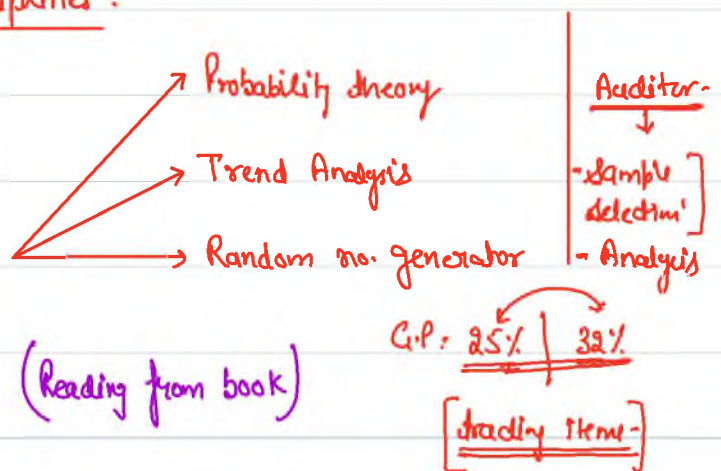 Probability theory
Trend Analysis
Random no. generator
Auditor-
- Sample
selection
- Analysis
(Reading from book)
G.P: 25% | 32%
[trading items-]